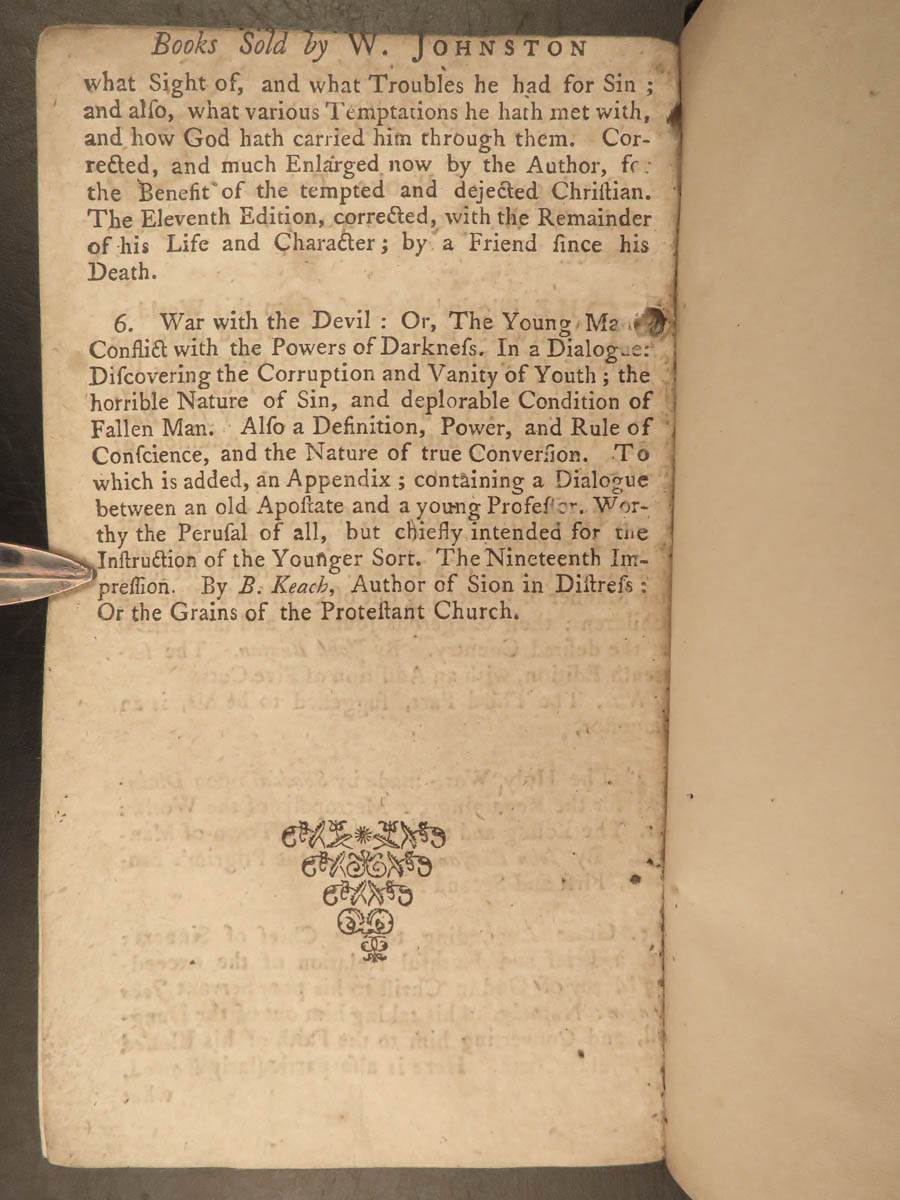 Books Sold by W. JOHNSTON
what Sight of, and what Troubles he had for Sin ;
and alſo, what various Temptations he hath met with,
and how God hath carried him through them. Cor-
rected, and much Enlarged now by the Author,
the Benefit of the tempted and dejected Chriſtian.
The Eleventh Edition, corrected, with the Remainder
of his Life and Character ; by a Friend ſince his
Death.
6. War with the Devil : Or, The Young
Conflict with the Powers of Darkneſs. In a Dialogue:
Diſcovering the Corruption and Vanity of Youth ; the
horrible Nature of Sin, and deplorable Condition of
Fallen Man. Alſo a Definition, Power, and Rule of
Conſcience, and the Nature of true Converſion. To
which is added, an Appendix ; containing a Dialogue
between an old Apoſtate and a young Profeſſor. Wor-
thy the Peruſal of all, but chiefly intended for the
Inſtruction of the Younger Sort. The Nineteenth Im-
preſſion. By B. Keach, Author of Sion in Diſtreſs :
Or the Grains of the Proteſtant Church.